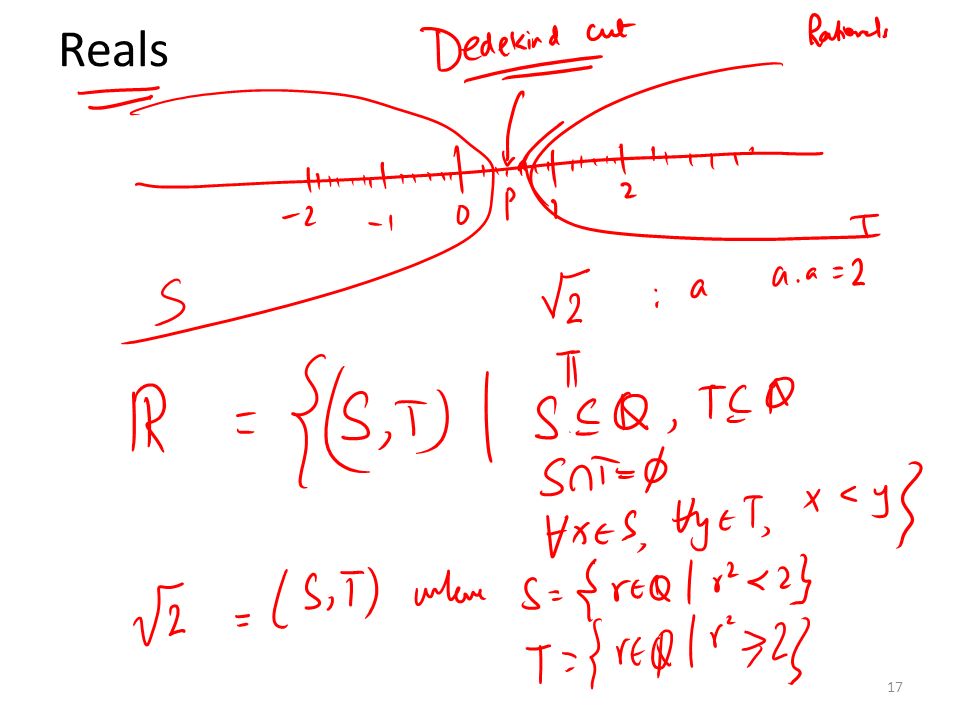 Reals
Dedekind cut
Rationals
-2 -1 0 P 1 2
T
S
√2 : a a.a = 2
π
ℝ = {(S,T) | S ⊆ ℚ, T ⊆ ℚ
S∩T=∅
∀x∈S, ∀y∈T, x < y}
√2 = (S,T) where S = {r∈ℚ | r² < 2}
T = {r∈ℚ | r² ⩾ 2}
17